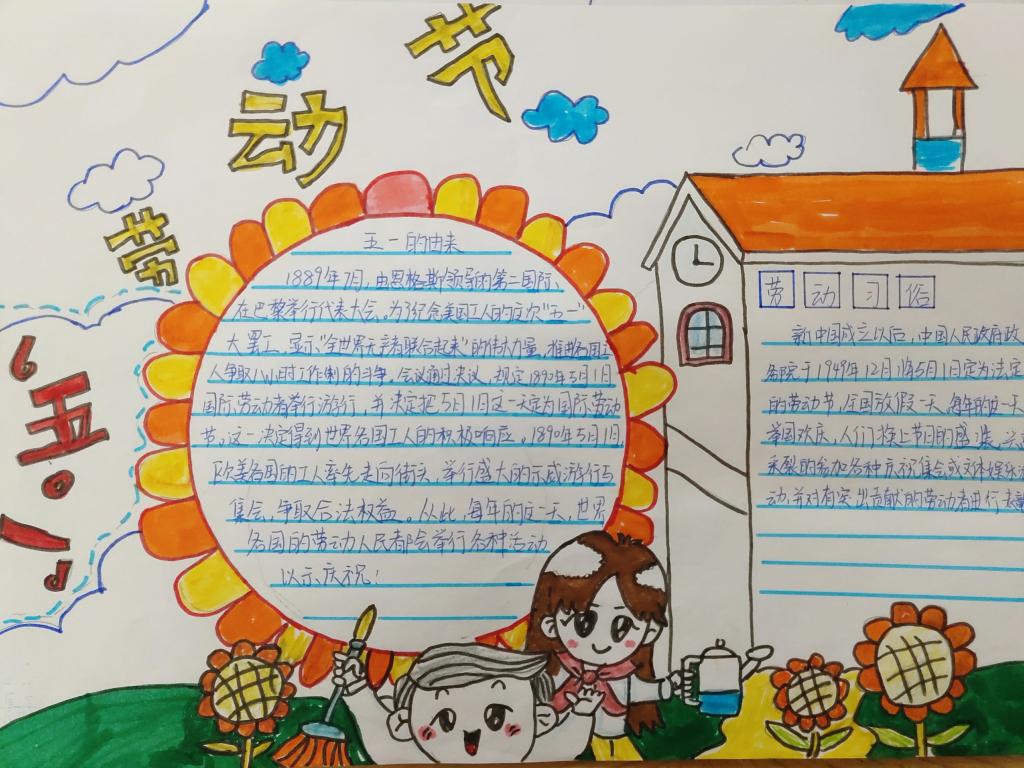 劳动节
“五·一”
五一的由来
1889年7月，由恩格斯领导的第二国际、
在巴黎举行代表大会。为了纪念美国工人的这次“五一”
大罢工，显示“全世界无产者联合起来”的伟大力量，推进各国工
人争取八小时工作制的斗争，会议通过决议，规定1890年5月1日
国际劳动者举行游行，并决定把5月1日这一天定为国际劳动
节。这一决定得到世界各国工人的积极响应。1890年5月1日，
欧美各国的工人率先走向街头，举行盛大的示威游行与
集会，争取合法权益。从此，每年的这一天，世界
各国的劳动人民都会举行各种活动
以示庆祝！
劳动习俗
新中国成立以后，中国人民政府政
务院于1949年12月将5月1日定为法定
的劳动节，全国放假一天。每年的这一天
举国欢庆，人们换上节日的盛装，兴
采烈的参加各种庆祝集会或文体娱乐活
动，并对有突出贡献的劳动者进行表